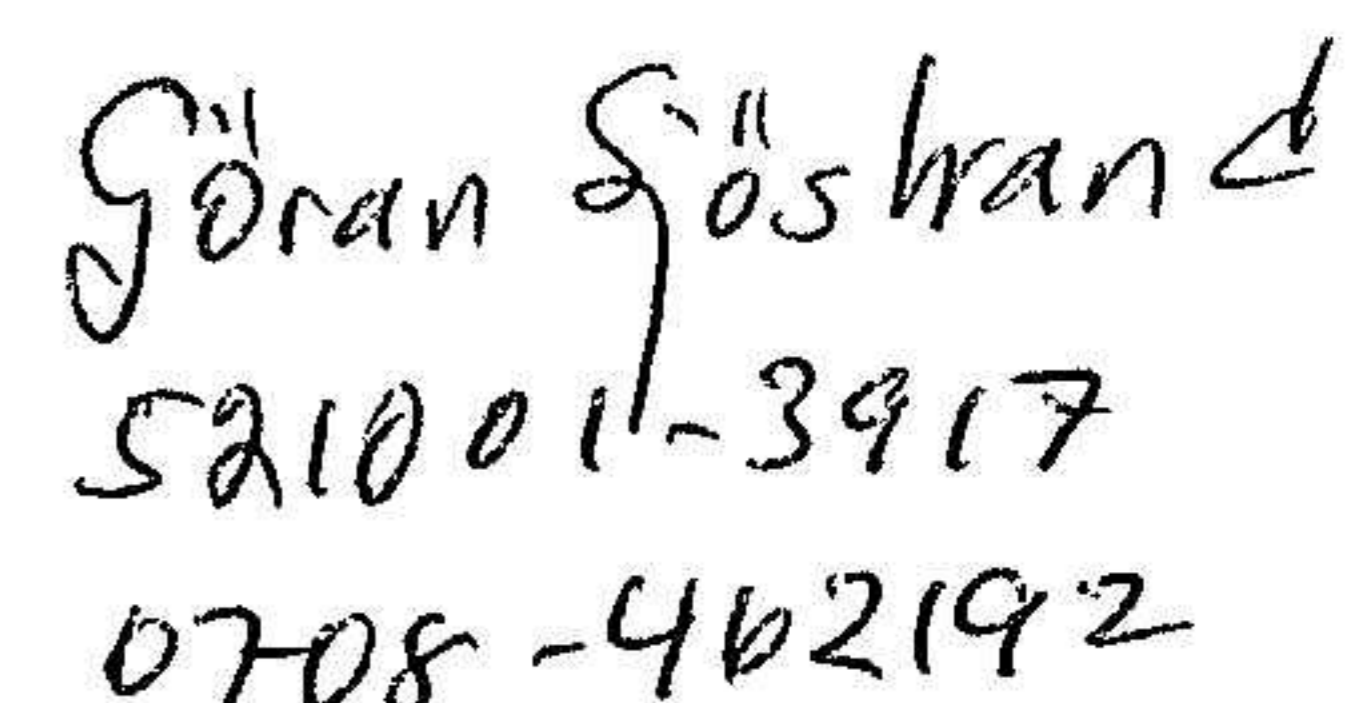 Göran Sjöstrand
521001-3917
0708-462192